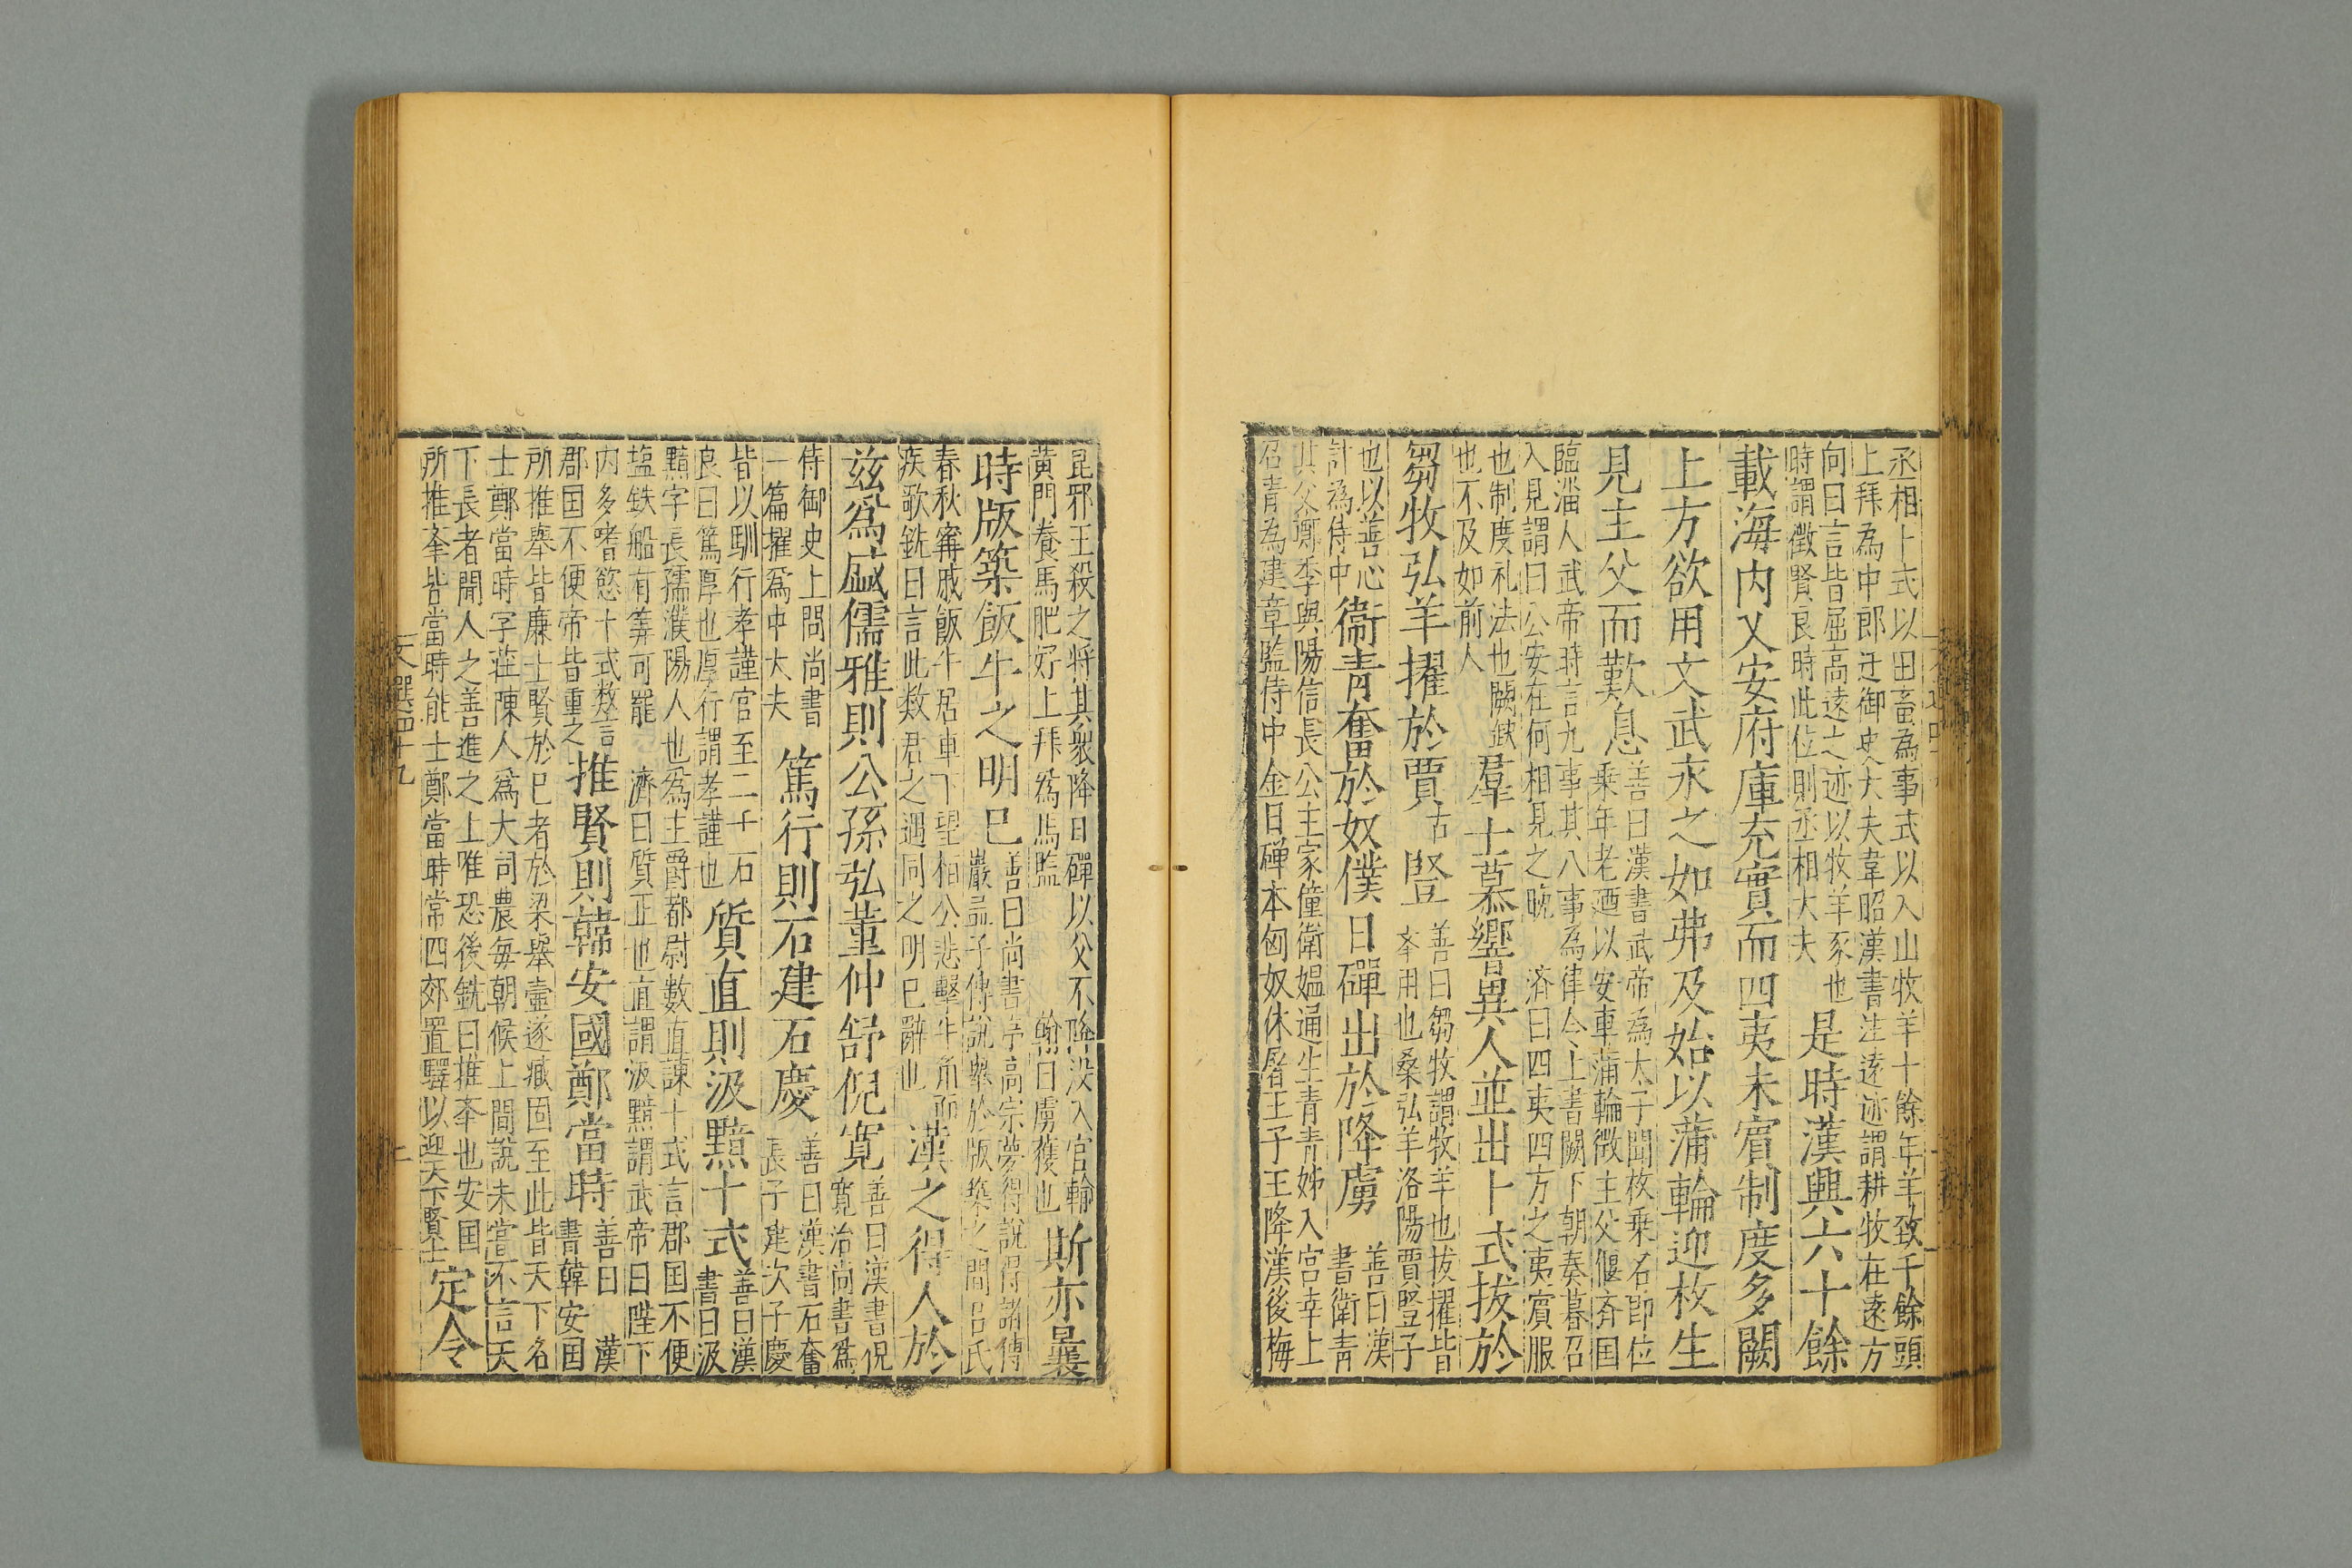 丞相卜式以田畜為事式以入山牧羊十餘年羊致千餘頭
上拜為中郎迁御史大夫韋昭漢書注逺迹謂耕牧在逺方
向曰言皆屈髙逺之迹以牧羊豕也
時謂徵賢良時此位則丞相大夫
是時漢興六十餘
載海内乂安府庫充實而四夷未賔制度多闕
上方欲用文武求之如弗及始以蒲輪迎枚生
見主父而歎息
善曰漢書武帝為太子聞枚乗名即位
乗年老廼以安車蒲輪徵主父偃斉囯
臨淄人武帝時言九事其八事為律令上書闕下朝奏暮召
入見謂曰公安在何相見之晩 済曰四夷四方之夷賔服
也制度礼法也闕鈌
也不及如前人
羣士慕響異人並出卜式拔於
芻牧弘羊擢於賈
古
豎
善曰芻牧謂牧羊也拔擢皆
奉用也桑弘羊洛陽賈豎子
也以善心
計為侍中
衞青奮於奴僕日磾出於降虜
善曰漢
書衛青
其父鄭季與陽信長公主家僮衛媪通生青青姊入宫幸上
召青為建章監侍中金日磾本匈奴休屠王子王降漢後悔
昆邪王殺之将其衆降日磾以父不降没入官輸
黄門養馬肥好上拜爲馬監 翰曰虜獲也
斯亦曩
時版築飯牛之明巳
善曰尚書序高宗夢得說得諸傅
巖孟子傅說舉於版築之間吕氏
春秋甯戚飯牛居車下望桓公悲擊牛角而
疾歌銑曰言此数君之遇同之明巳辭也
漢之得人於
兹爲盛儒雅則公孫弘董仲舒倪寛
善曰漢書倪
寛治尚書爲
侍御史上問尚書
一篇擢爲中大夫
篤行則石建石慶
善曰漢書石奮
長子建次子慶
皆以馴行孝謹官至二千石
良曰篤厚也厚行謂孝謹也
質直則汲黯卜式
善曰漢
書曰汲
黯字長孺濮陽人也為主爵都尉數直諫卜式言郡囯不便
塩鉄船有筭可罷 濟曰質正也直謂汲黯謂武帝曰陛下
内多嗜慾卜式数言
郡囯不便帝皆重之
推賢則韓安國鄭當時
善曰漢
書韓安囯
所推舉皆廉士賢於巳者於梁舉壼遂臧固至此皆天下名
士鄭當時字荘陳人爲大司農毎朝候上間說未甞不言天
下長者聞人之善進之上唯恐後銑曰推奉也安囯
所推奉皆當時能士鄭當時常四郊置驛以迎天下賢士
定令
文選四十九